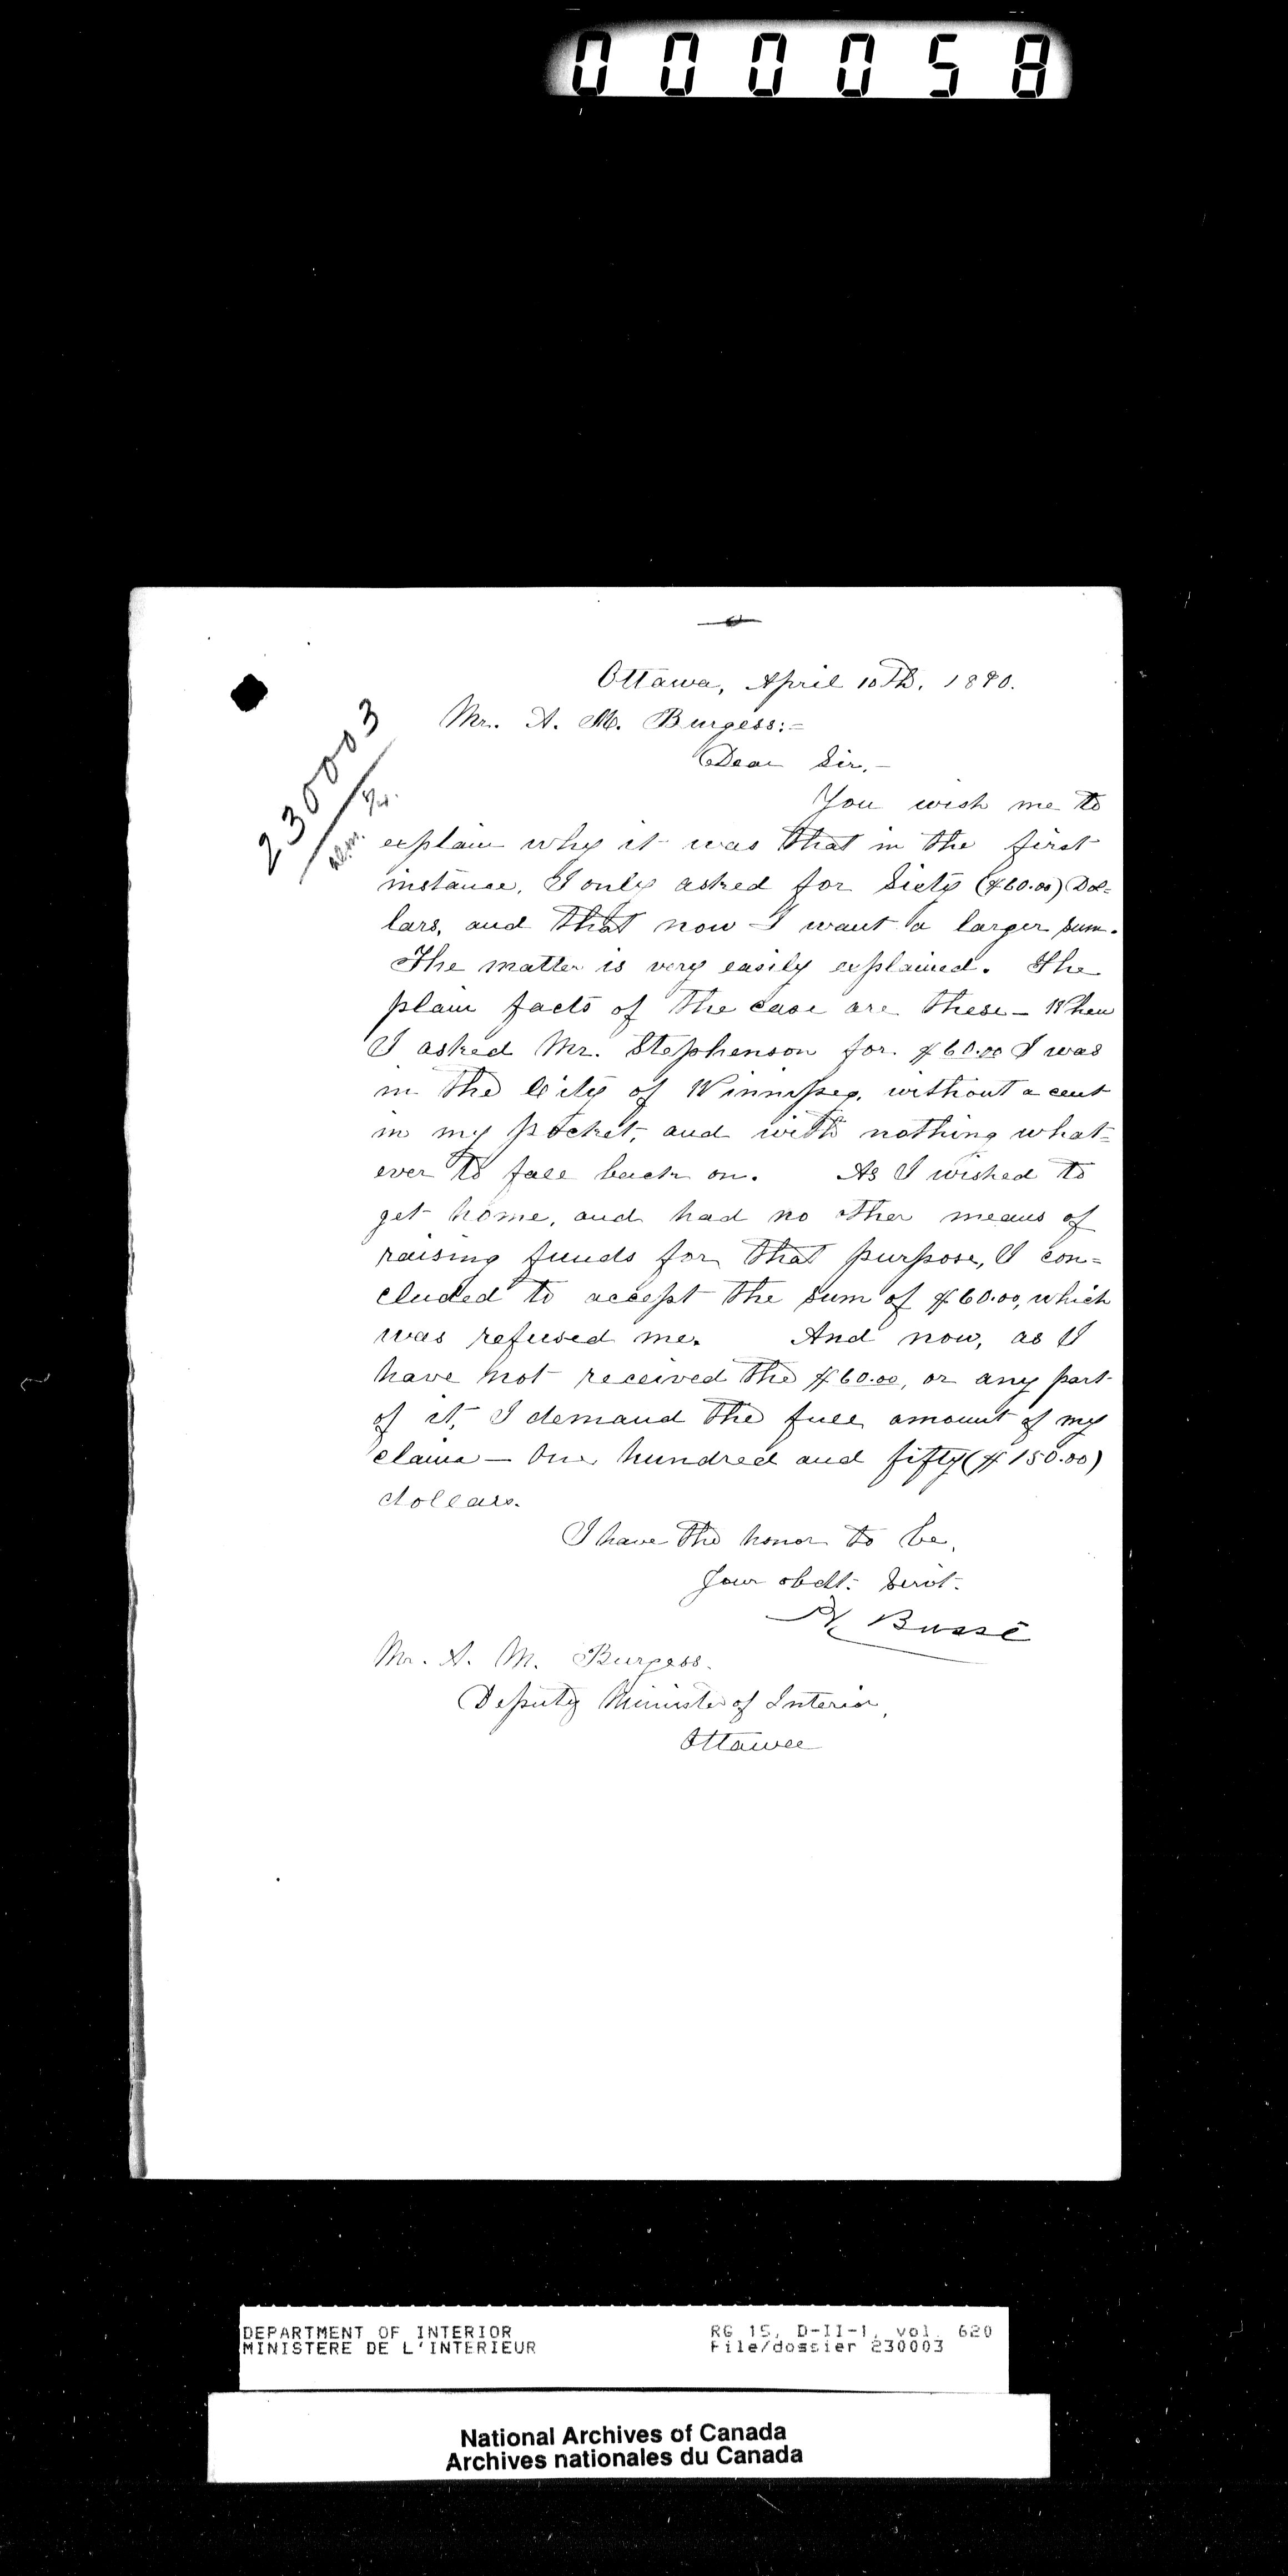 000058
Ottawa, April 10th. 1890.
Mr. A. M. Burgess:-
Dear Sir,-
230003
You wish me to
explain why it was that in the first
instance, I only asked for Sixty ($60.00) Dol=
lars, and that now I want a larger sum.
The matter is very easily explained. The
plain facts of the case are these - When
I asked Mr. Stephenson for. $60.00 I was
in the City of Winnipeg, without a cent
in my pocket, and with nothing what=
ever to fall back on. As I wished to
get home, and had no other means of
raising funds for that purpose, I con=
cluded to accept the sum of $60.00, which
was refused me. And now, as I
have not received the $60.00, or any part
of it, I demand the full amount of my
claim - One hundred and fifty ($150.00)
dollars.
I have the honor to be,
Your obdt. Servt.
Bussé
Mr. A. M. Burgess.
Deputy Minister of Interior,
Ottawa
DEPARTMENT OF INTERIOR RG 15, D-II-1, vol. 620
MINISTERE DE L'INTERIEUR File/dossier 230003
National Archives of Canada
Archives nationales du Canada